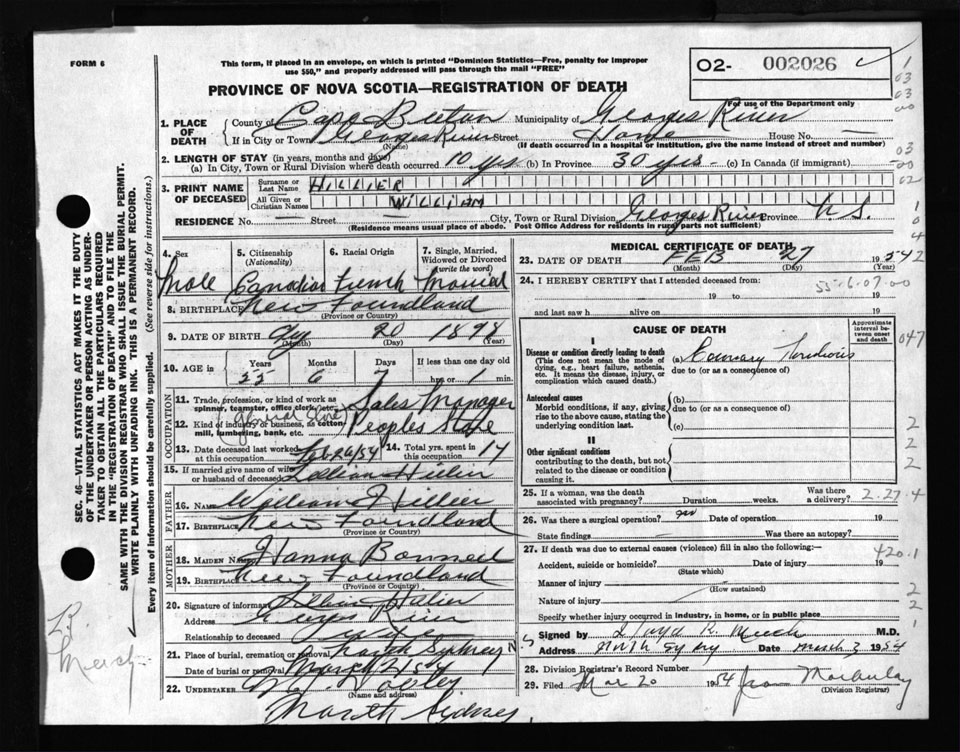 FORM 6
This form, if placed in an envelope, on which is printed "Dominion Statistics—Free, penalty for improper
use $50," and properly addressed will pass through the mail "FREE"
O2- 002026
For use of the Department only
PROVINCE OF NOVA SCOTIA—REGISTRATION OF DEATH
1. PLACE OF DEATH
County of Cape Breton Municipality of Georges River
If in City or Town Georges River Street Home House No. —
(Name) (If death occurred in a hospital or institution, give the name instead of street and number)
2. LENGTH OF STAY (in years, months and days)
(a) In City, Town or Rural Division where death occurred 10 yrs (b) In Province 30 yrs - (c) In Canada (if immigrant)
3. PRINT NAME OF DECEASED
Surname or Last Name HILLIER
All Given or Christian Names WILLIAM
RESIDENCE No. — Street — City, Town or Rural Division Georges River Province N S.
(Residence means usual place of abode. Post Office Address for residents in rural parts not sufficient)
4. Sex Male
5. Citizenship (Nationality) Canadian
6. Racial Origin French
7. Single, Married, Widowed or Divorced (write the word) Married
8. BIRTHPLACE New Foundland
(Province or Country)
9. DATE OF BIRTH 20 1898
(Month) (Day) (Year)
10. AGE in Years 55 Months 6 Days 7 If less than one day old hrs or min.
OCCUPATION
11. Trade, profession, or kind of work as spinner, teamster, office clerk, etc. Sales Manager
12. Kind of industry or business, as cotton mill, lumbering, bank, etc. Peoples Store
13. Date deceased last worked at this occupation Feb 26/54
14. Total yrs. spent in this occupation 17
15. If married give name of wife or husband of deceased Lillian Hillier
FATHER
16. Name William Hillier
17. Birthplace New Foundland
MOTHER
18. MAIDEN Name Hanna
19. Birthplace New Foundland
(Province or Country)
20. Signature of informant Lillian Hillier
Address Georges River
Relationship to deceased
21. Place of burial, cremation or removal North Sydney
Date of burial or removal March 2 / 54
22. UNDERTAKER
(Name and address)
North Sydney
MEDICAL CERTIFICATE OF DEATH
23. DATE OF DEATH FEB 27 1954
(Month) (Day) (Year)
24. I HEREBY CERTIFY that I attended deceased from:
19 to 19
and last saw h alive on 19
55-6-07-00
CAUSE OF DEATH
Approximate interval between onset and death
I
Disease or condition directly leading to death
(This does not mean the mode of dying, e.g., heart failure, asthenia, etc. It means the disease, injury, or complication which caused death.)
(a) Coronary
due to (or as a consequence of)
Antecedent causes
Morbid conditions, if any, giving rise to the above cause, stating the underlying condition last.
(b)
due to (or as a consequence of)
(c)
II
Other significant conditions
contributing to the death, but not related to the disease or condition causing it.
25. If a woman, was the death associated with pregnancy? Duration weeks. Was there delivery? 2-27-4
26. Was there a surgical operation? no Date of operation 19
State findings Was there an autopsy?
27. If death was due to external causes (violence) fill in also the following:—
420.1
Accident, suicide or homicide? Date of injury 19
(State which)
Manner of injury
(How sustained)
Nature of injury
Specify whether injury occurred in industry, in home, or in public place
Signed by M.D.
Address North Sydney Date March 3 1954
28. Division Registrar's Record Number
29. Filed Mar 20 1954
(Division Registrar)
SEC. 46—VITAL STATISTICS ACT MAKES IT THE DUTY
OF THE UNDERTAKER OR PERSON ACTING AS UNDER-
TAKER TO OBTAIN ALL THE PARTICULARS REQUIRED
IN THE "REGISTRATION OF DEATH" AND TO FILE THE
SAME WITH THE DIVISION REGISTRAR WHO SHALL ISSUE THE BURIAL PERMIT.
WRITE PLAINLY WITH UNFADING INK. THIS IS A PERMANENT RECORD.
Every item of information should be carefully supplied. (See reverse side for instructions.)